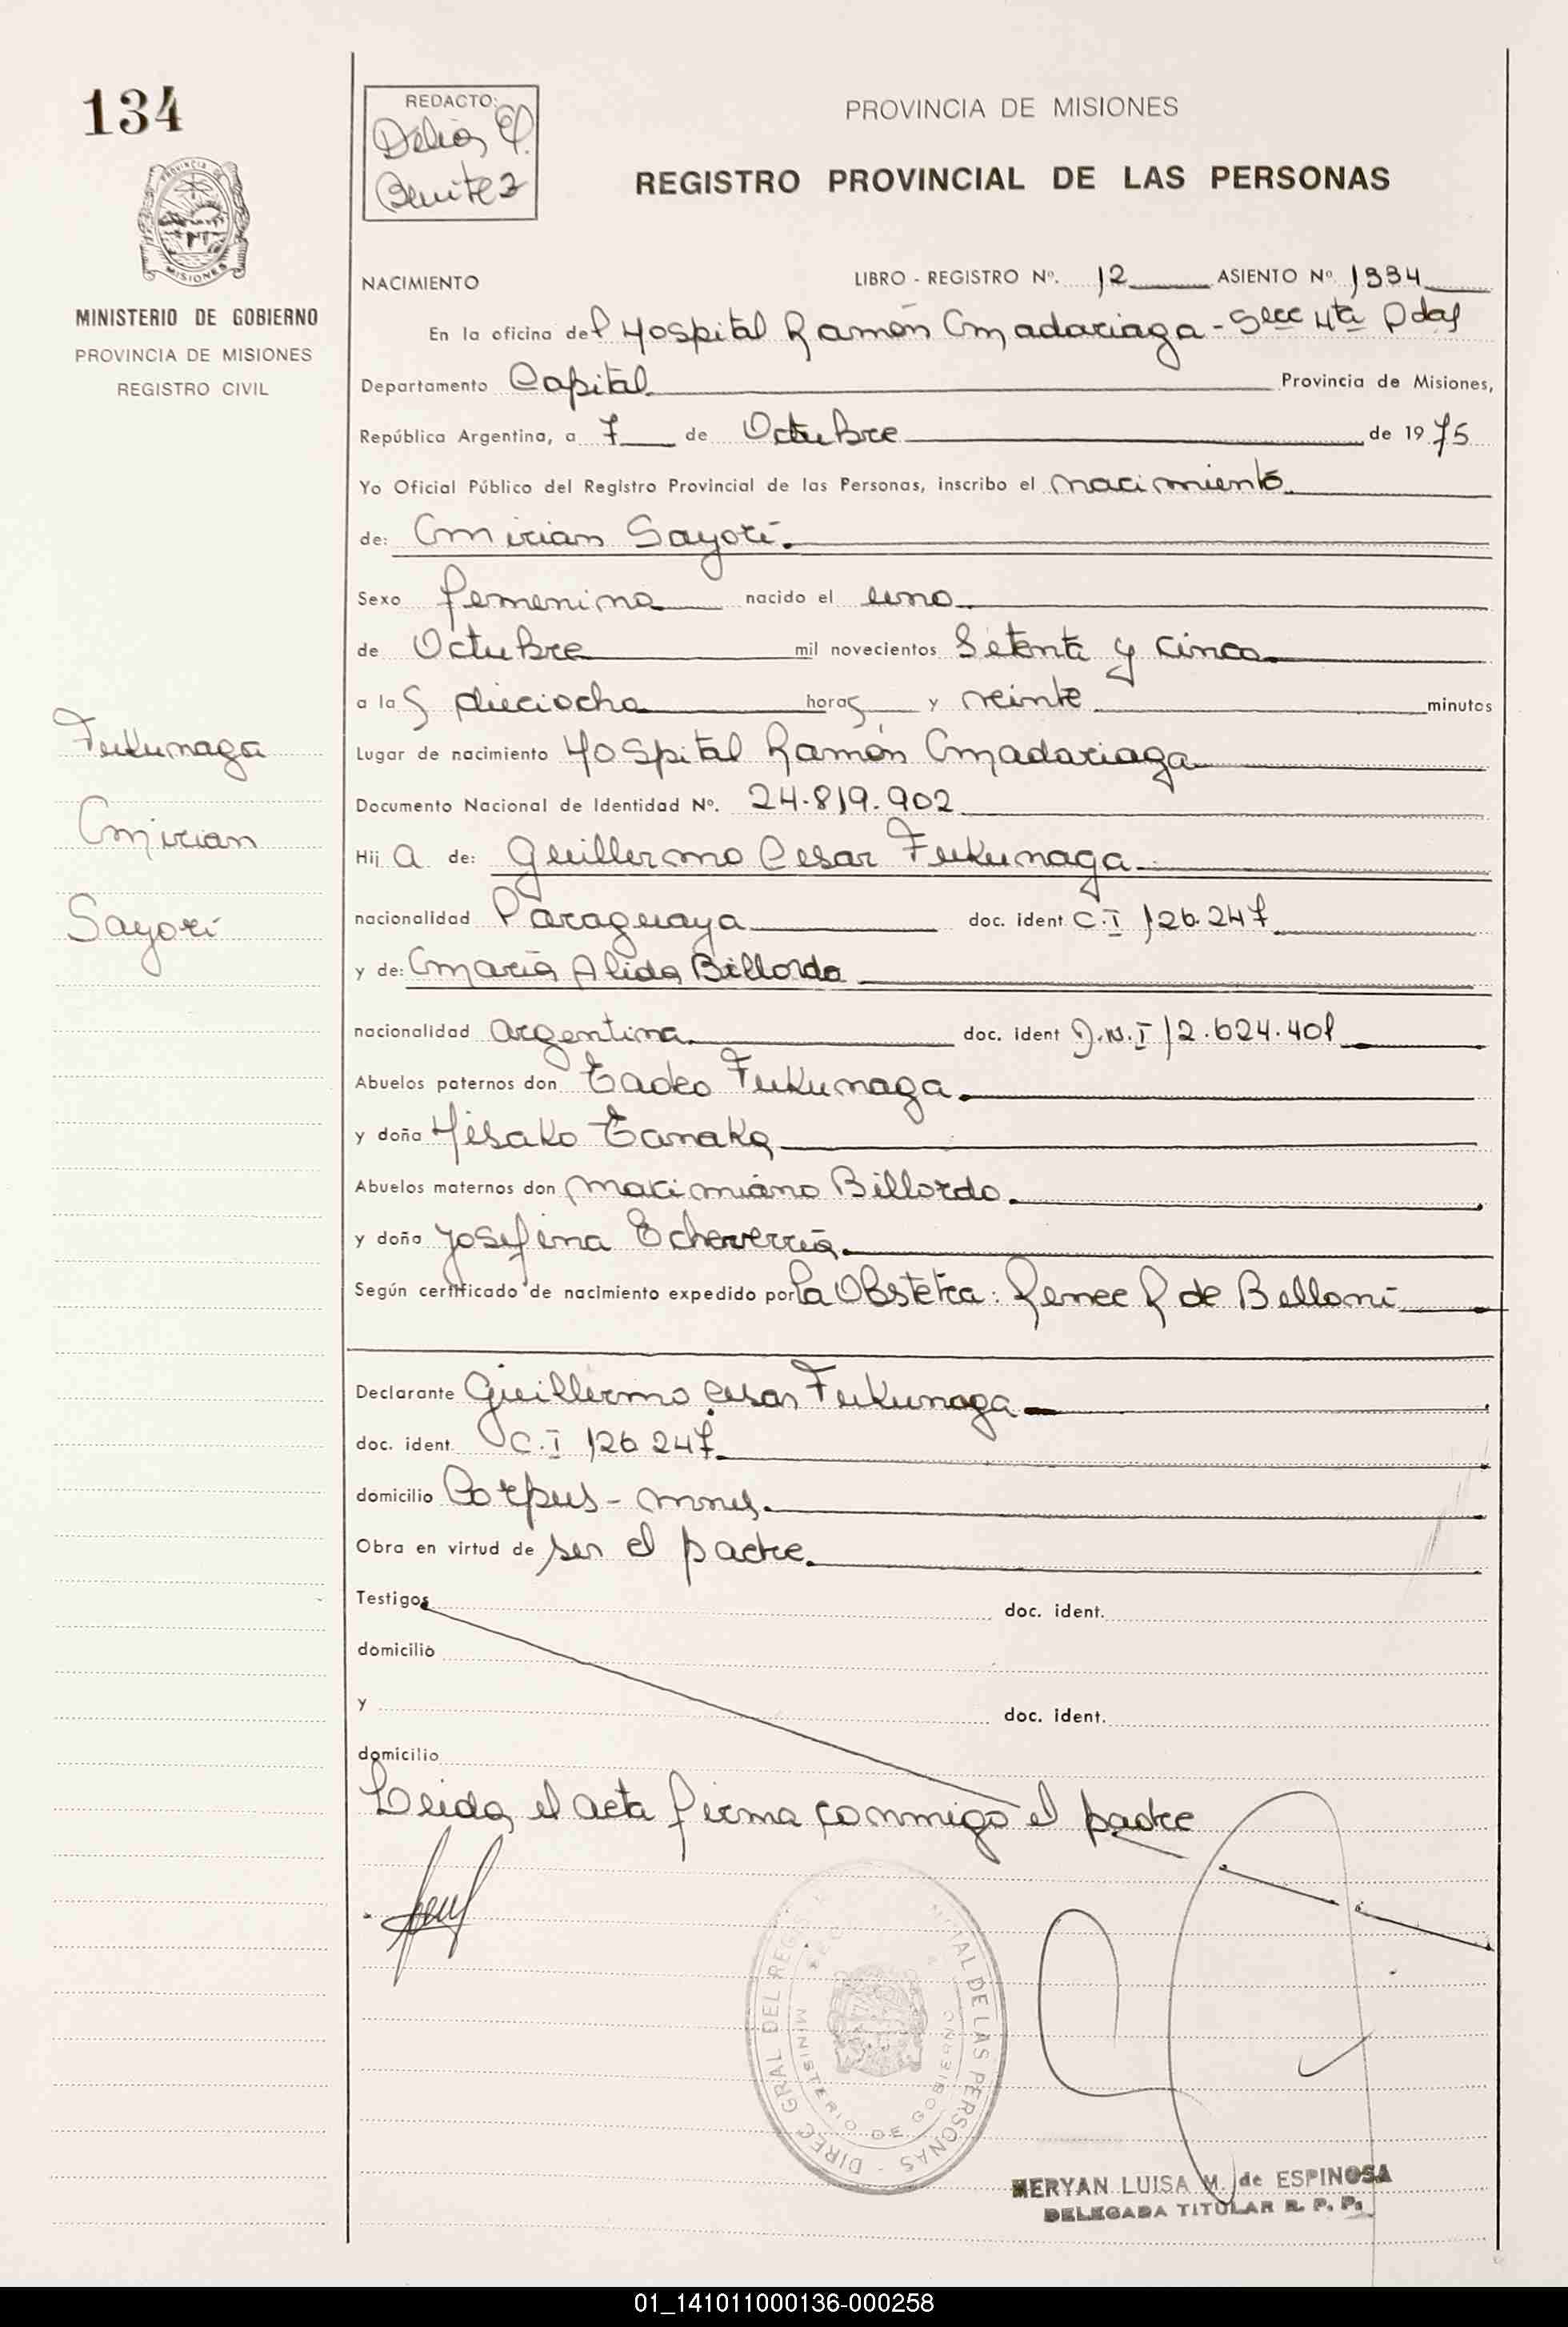 134
REDACTO:
Delia E.
Benitez
PROVINCIA DE MISIONES
REGISTRO PROVINCIAL DE LAS PERSONAS
PROVINCIA DE
MISIONES
MINISTERIO DE GOBIERNO
PROVINCIA DE MISIONES
REGISTRO CIVIL
NACIMIENTO LIBRO - REGISTRO Nº. 12 ASIENTO Nº 1334
En la oficina del Hospital Ramón Madariaga - Secc 4ta Pdas
Departamento Capital Provincia de Misiones,
República Argentina, a 7 de Octubre de 1975
Yo Oficial Público del Registro Provincial de las Personas, inscribo el nacimiento
de: Mirian Sayori.
Sexo femenino nacido el uno
de Octubre mil novecientos Setenta y cinco
a las dieciocho horas y veinte minutos
Lugar de nacimiento Hospital Ramón Madariaga
Documento Nacional de Identidad Nº. 24.819.902
Hija de: Guillermo Cesar Fukunaga
nacionalidad Paraguaya doc. ident C.I 126.247
y de: María Alida Billordo
nacionalidad argentina doc. ident D.N.I 12.624.401
Abuelos paternos don Tadeo Fukunaga
y doña Hisako Tanaka
Abuelos maternos don Maximiano Billordo
y doña Josefina Echeverría
Según certificado de nacimiento expedido por la Obstetra: Renee R de Belloni
Declarante Guillermo Cesar Fukunaga
doc. ident. C.I 126 247
domicilio Corpus - Mnes.
Obra en virtud de ser el padre
Testigos doc. ident.
domicilio
y doc. ident.
domicilio
Leida el acta firma conmigo el padre
Fukunaga
Mirian
Sayori
DIREC GRAL DEL REG AL DE LAS PERSONAS
MINISTERIO DE GOBIERNO
MERYAN LUISA M. de ESPINOSA
DELEGADA TITULAR R. P. P.
01_141011000136-000258